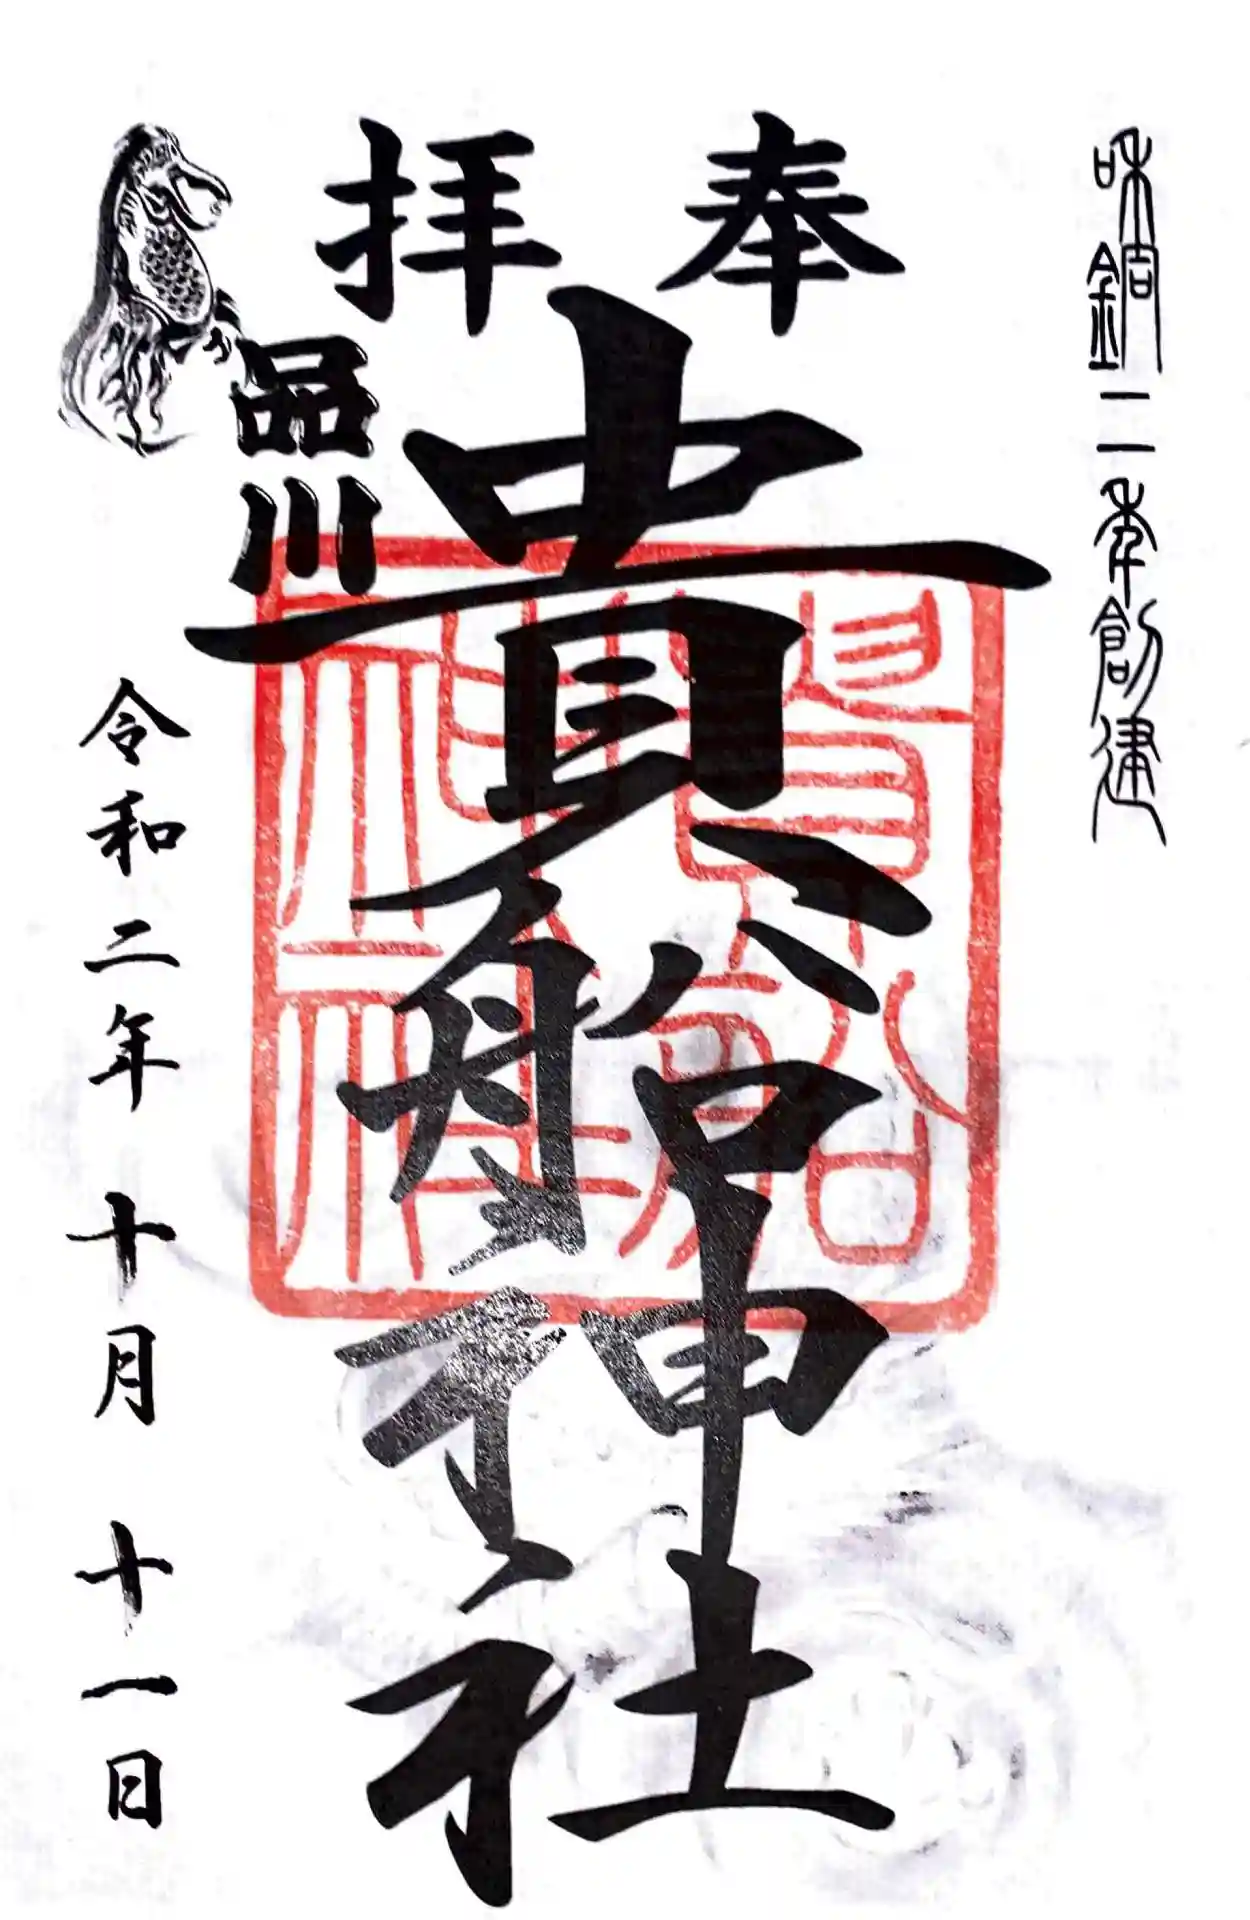 和銅二年創建
奉拝
品川
貴船神社
貴船神社
令和二年 十月 十一日